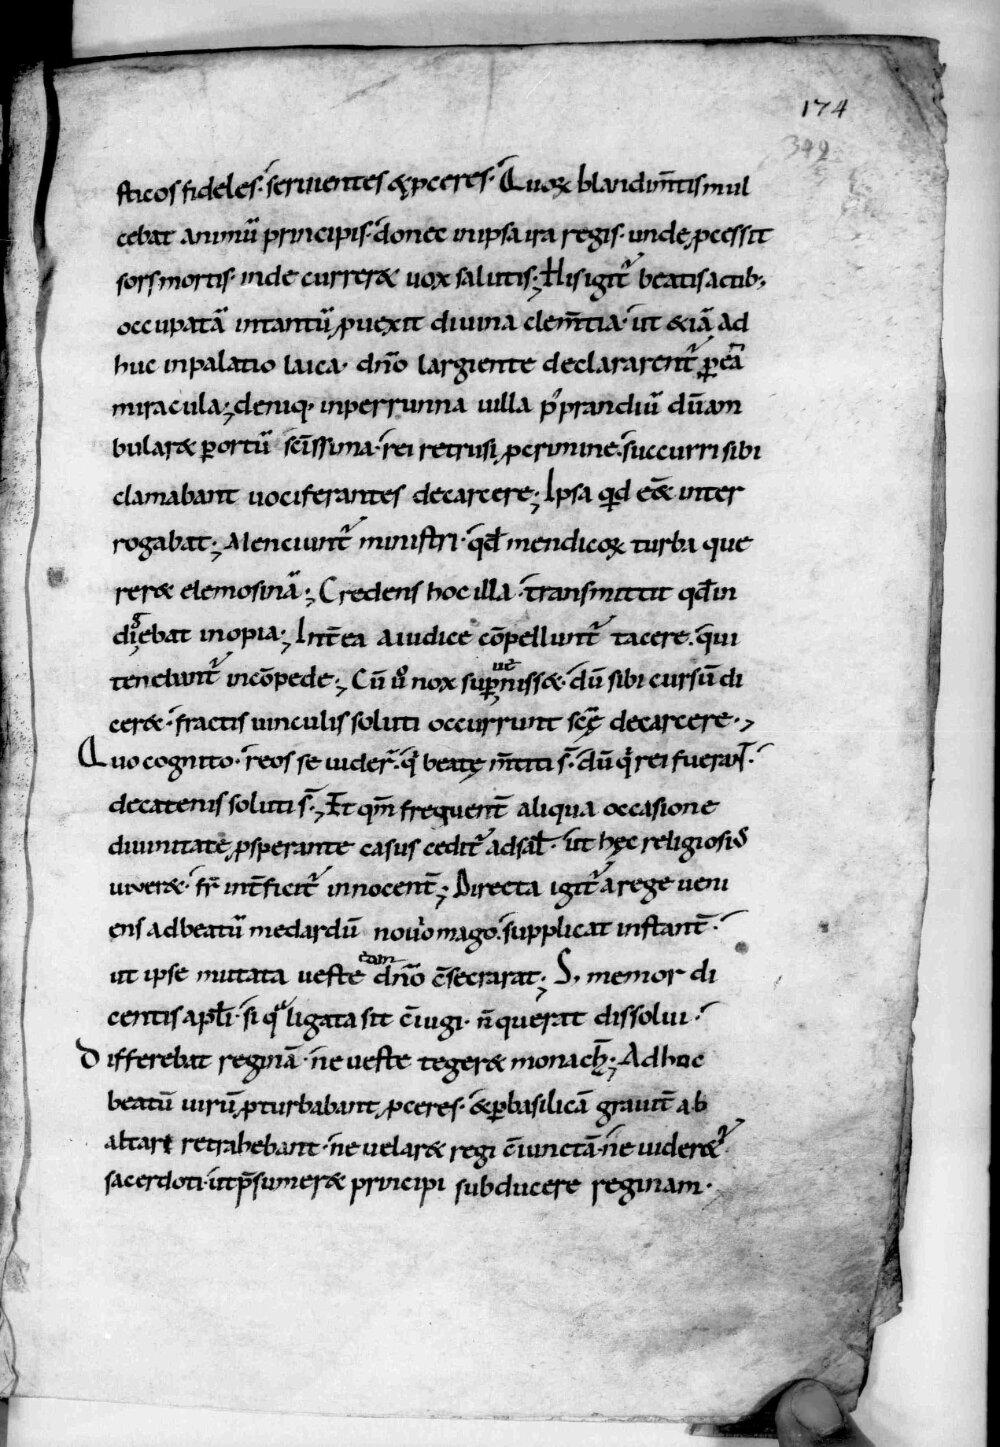 174
342
sticos fideles· seruientes & ꝓceres· Quoꝝ blandim̃tis mul
cebat animũ principis· donec in ipsa ira regis· unde ꝓcessit
sors mortis· inde currer& uox salutis; His igit᷑ beatis actib;
occupatã intantũ ꝓuexit diuina clem̃tia· ut &iã ad
huc in palatio laica· dño largiente declararent᷑ ꝑ eã
miracula; deniq· inperrunna uilla p᷒ prandiũ dũ am
bular& ꝑ ortũ sc̃issima· rei retrusi ꝓ crimine· succurri sibi
clamabant uociferantes decarcere; Ipsa qđ e&̃ inter
rogabat; Menciunt᷑ ministri· qđ mendicoꝝ turba que
rer& elemosinã; Credens hoc illa· transmittit qđ in
digebat inopia; Int̃ea a iudice cõpellunt᷑ tacere· qui
tenebant᷑ incõpede; Cũ u͛o nox sup̱ue niss&· dũ sibi cursũ di
cer&· fractis uinculis soluti occurrunt sc̃ę decarcere·,
Quo cognito· reos se uider̃· q̉ beatę m̃titi s̃· dũ q̉ rei fuerant̃·
decatenis soluti s̃; Et qm̃ frequent̃ aliqua occasione
diuinitate ꝓsperante casus cedit᷑ ad sal̃· ut hęc religiosi᷒
uiuer&· fr̃ int̃ficit᷑ innocent̃; Directa igit᷑ a rege ueni
ens ad beatũ medardũ nouiomago· supplicat instant̃·
ut ipse mutata ueste eam dño c̃secrarat; S, memor di
centis apl̃i· si qͣ ligata sit c̃iugi· ñ querat dissolui·
Differebat reginã· ne ueste teger& monacħ; Ad hoc
beatũ uirũ ꝑturbabant ꝓceres· & ꝑ basilicã grauit̃ ab
altari retrahebant· ne uelar& regi c̃iunctã· ne uider&᷑
sacerdoti· ut p̃sumer& principi subducere reginam·